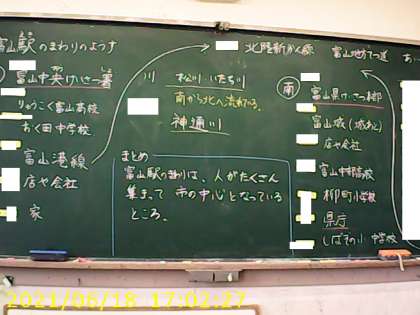 富山駅のまわりのようす
富山中央けいさつ署
りょうこく富山高校
おく田中学校
富山港線
店や会社
家
川 松川・いたち川
南から北へ流れてる。
神通川
まとめ
富山駅のまわりは、人がたくさん
集まって 市の中心となっている
ところ。
北陸新かん線 富山地方てつ道
南
富山県けいさつ本部
富山城(城あと)
店や会社
富山中部高校
柳町小学校
県庁
しばぞの小 中学校
2021/06/18 17:02:27